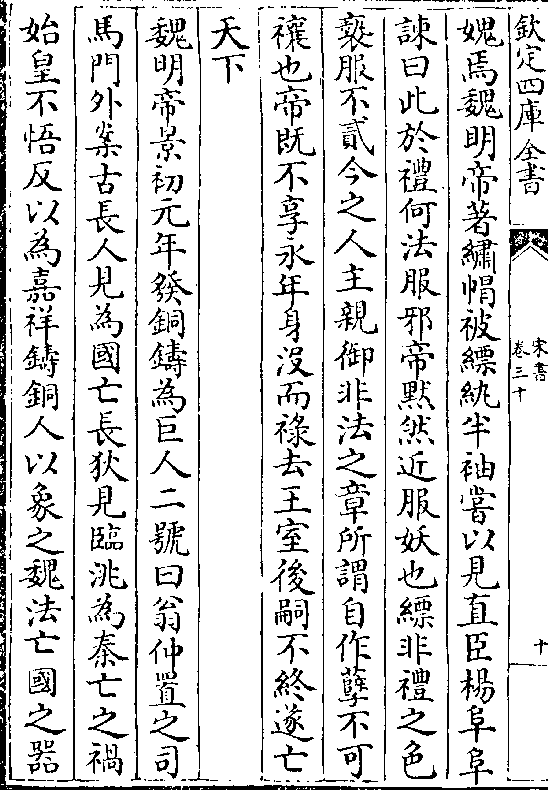 欽定四庫全書
宋書
卷三十
十
媿焉魏明帝著繡帽被縹紈半袖嘗以見直臣楊阜阜
諫曰此於禮何法服邪帝默然近服妖也縹非禮之色
褻服不貳今之人主親御非法之章所謂自作孽不可
禳也帝既不享永年身沒而祿去王室後嗣不終遂亡
天下
魏明帝景初元年發銅鑄為巨人二號曰翁仲置之司
馬門外案古長人見為國亡長狄見臨洮為秦亡之禍
始皇不悟反以為嘉祥鑄銅人以象之魏法亡國之器